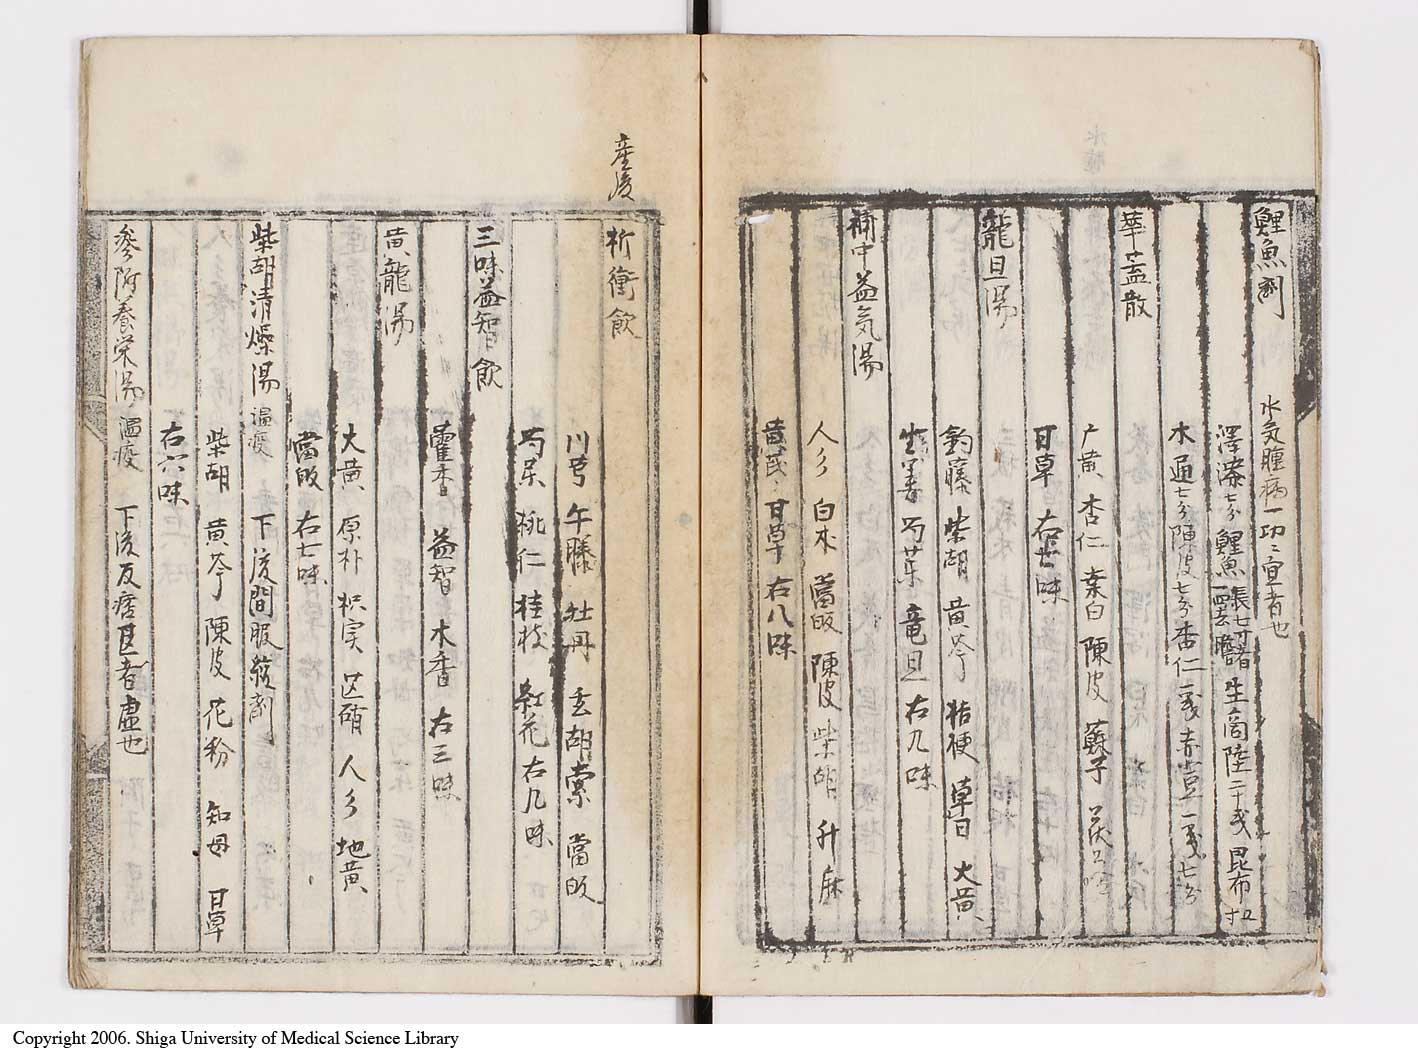 鯉魚剤
水気腫病一切ニ宜者也
澤漆七分 鯉魚 生商陸二十戔 昆布
木通七分 陳皮七分 杏仁一戔 赤豆一戔七分
華盖散
广黄 杏仁 桒白 陳皮 蘓子 茯
甘草 右七味
龍胆湯
釣藤 柴胡 黄芩 桔梗 大黄
芍薬 竜胆 右九味
補中益気湯
人参 白朮 當皈 陳皮 柴胡 升麻
黄芪 甘草 右八味
産後
折衝飲
川芎 午膝 牡丹 玄胡索 當皈
芍薬 桃仁 桂枝 紅花 右九味
三味益智飲
藿香 益智 木香 右三味
黄龍湯
大黄 厚朴 枳実 芒硝 人参 地黄
當皈 右七味
柴胡清燥湯 温疫 下後間服緩剤
柴胡 黄芩 陳皮 花粉 知母 甘草
右六味
参附養栄湯 温疫 下後反痞